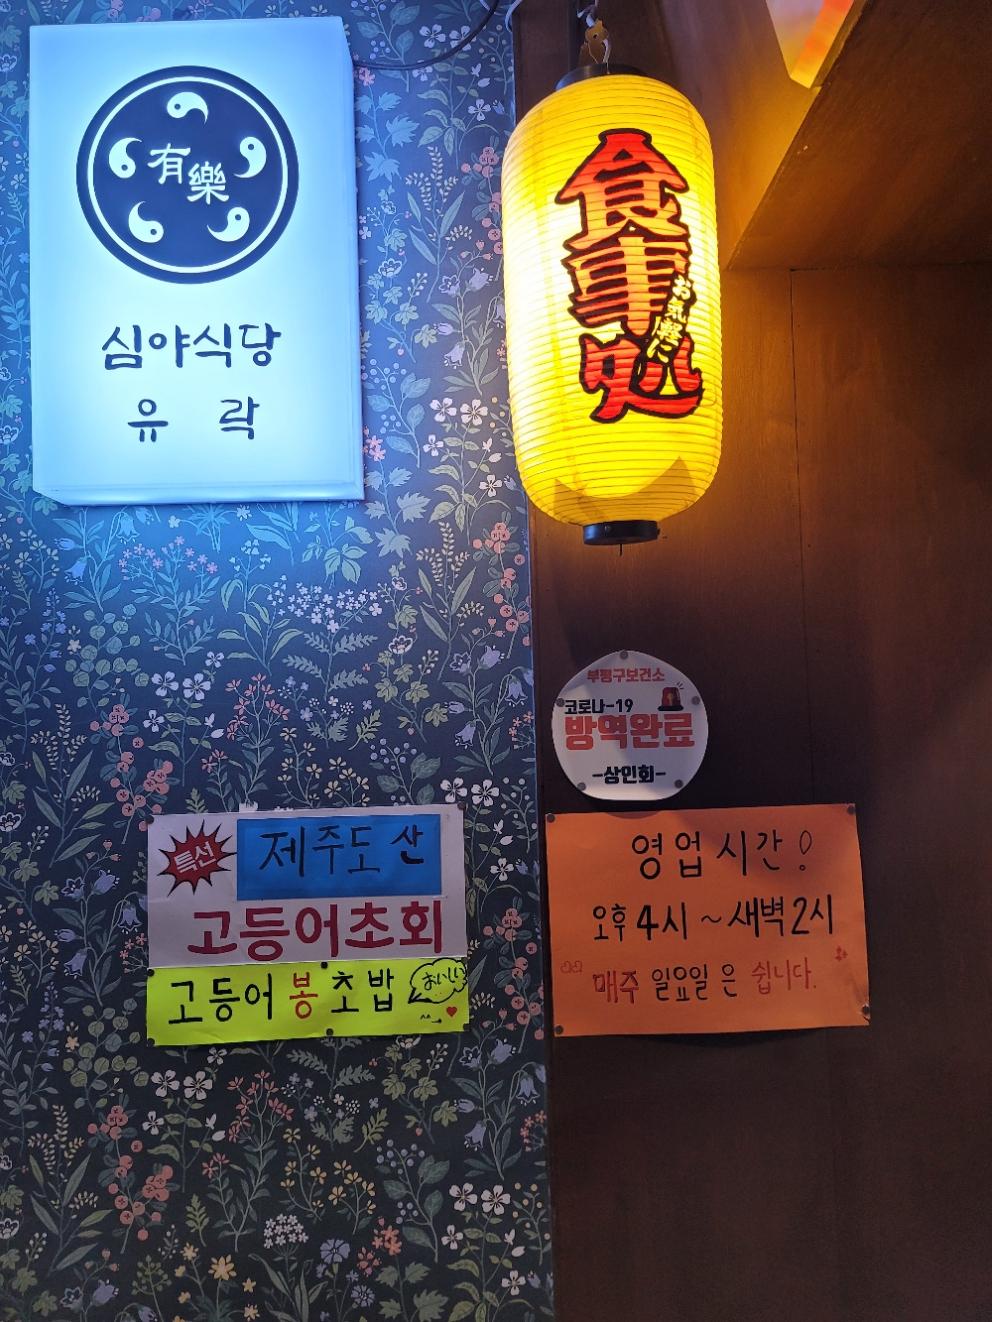 有樂
심야식당
유 락
食事処
お気軽に
부평구보건소
코로나-19
방역완료
-상인회-
특선
제주도 산
고등어초회
고등어 봉 초밥
おいしい
영업시간!
오후 4시 ~ 새벽 2시
매주 일요일 은 쉽니다.